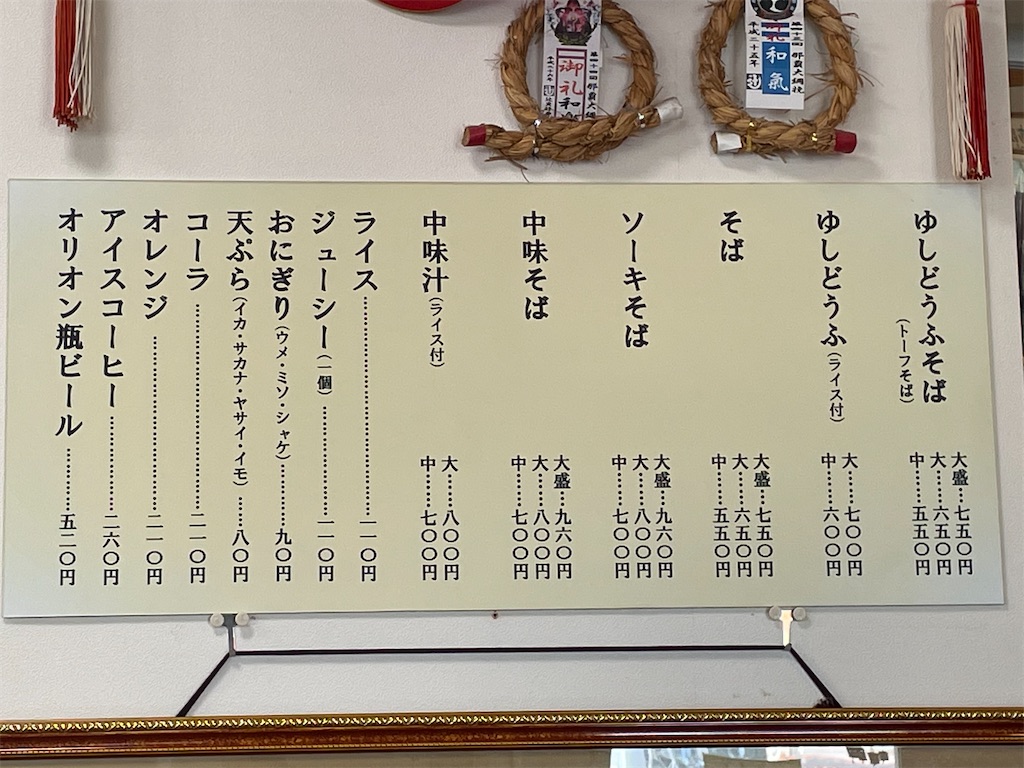 御礼
和
平成二十六年
那覇大綱挽
和氣
平成二十五年
ゆしどうふそば
（トーフそば）
大盛…七五〇円
大……六五〇円
中……五五〇円
ゆしどうふ（ライス付）
大……七〇〇円
中……六〇〇円
そば
大盛…七五〇円
大……六五〇円
中……五五〇円
ソーキそば
大盛…九六〇円
大……八〇〇円
中……七〇〇円
中味そば
大盛…九六〇円
大……八〇〇円
中……七〇〇円
中味汁（ライス付）
大……八〇〇円
中……七〇〇円
ライス……………………一一〇円
ジューシー（一個）…………一一〇円
おにぎり（ウメ・ミソ・シャケ）………九〇円
天ぷら（イカ・サカナ・ヤサイ・イモ）……八〇円
コーラ……………………二一〇円
オレンジ…………………二一〇円
アイスコーヒー…………二六〇円
オリオン瓶ビール………五二〇円